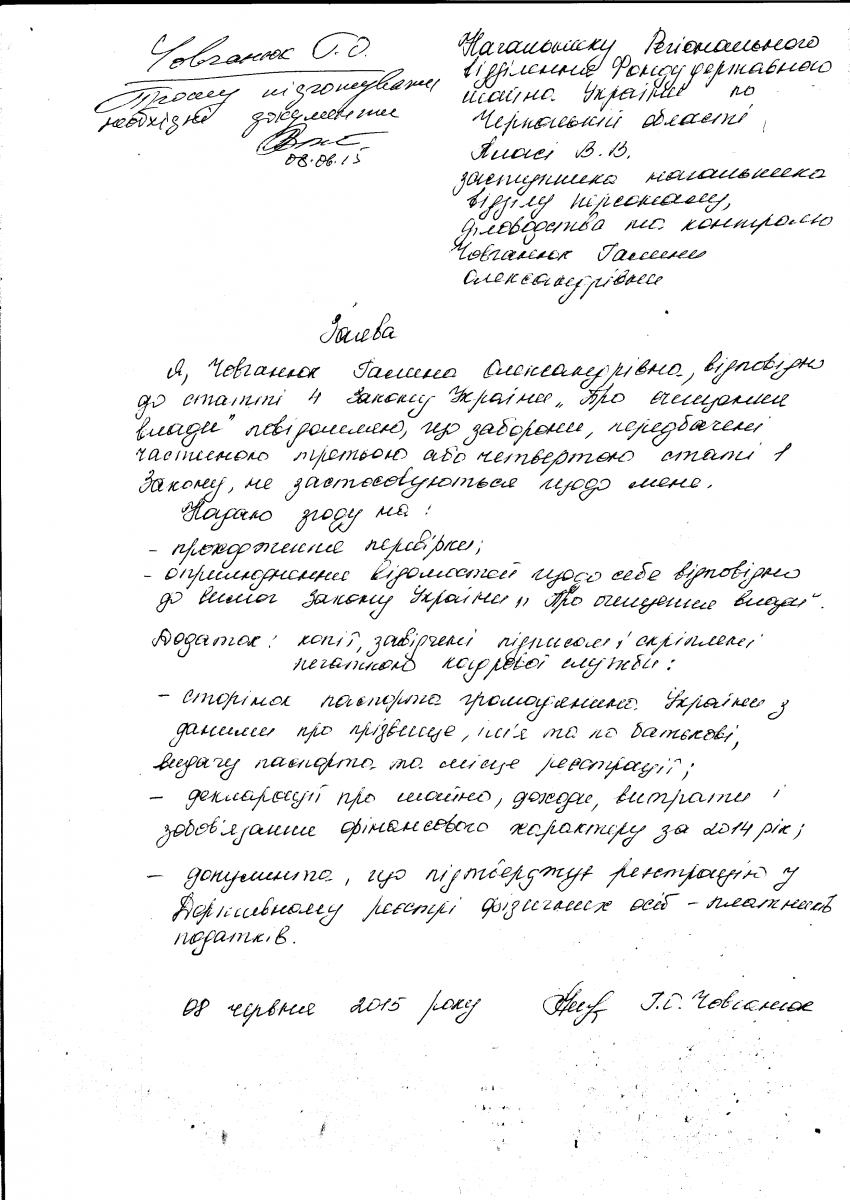 Човганюк Г.О.
Прошу підготувати
необхідні документи
08.06.15
Начальнику Регіонального
відділення Фонду державного
майна України по
Черкаській області
В.В.
заступника начальника
відділу персоналу,
діловодства та контролю
Човганюк Галини
Олександрівни
Заява
Я, Човганюк Галина Олександрівна, відповідно
до статті 4 Закону України „Про очищення
влади" повідомляю, що заборони, передбачені
частиною третьою або четвертою статті 1
Закону, не застосовуються щодо мене.
Надаю згоду на:
- проходження перевірки;
- оприлюднення відомостей щодо себе відповідно
до вимог Закону України „Про очищення влади".
Додаток: копії, завірчені підписом і скріплені
печаткою кадрової служби:
- сторінок паспорта громадянина України з
даними про прізвище, ім'я та по батькові,
видачу паспорта та місце реєстрації;
- декларації про майно, доходи, витрати і
зобов'язання фінансового характеру за 2014 рік;
- документа, що підтверджує реєстрацію у
Державному реєстрі фізичних осіб - платників
податків.
08 червня 2015 року Г.О. Човганюк